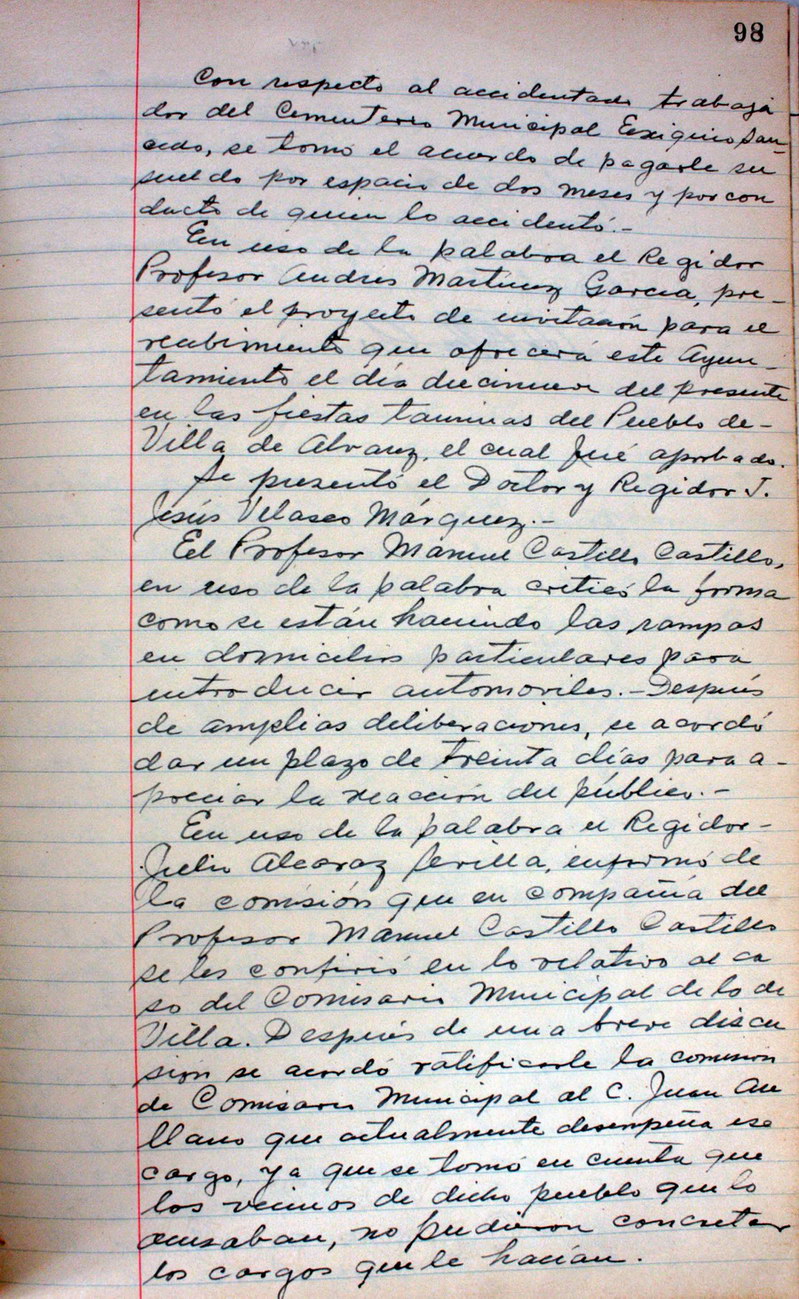 98
Con respecto al accidentado trabaja
dor del Cementerio Municipal Exiquio Sau-
cedo, se tomó el acuerdo de pagarle su
sueldo por espacio de dos meses y por con
ducto de quien lo accidentó.-
En uso de la palabra el Regidor
Profesor Andres Martinez Garcia, pre-
sentó el proyecto de invitación para el
recibimiento que ofrecerá este Ayun-
tamiento el día diecinueve del presente
en las fiestas taurinas del Pueblo de-
Villa de Alvarez, el cual fué aprobado.
Se presentó el Doctor y Regidor J.
Jesús Velasco Márquez.-
El Profesor Manuel Castillo Castillo,
en uso de la palabra criticó la forma
como se están haciendo las rampas
en domicilios particulares para
introducir automoviles.- Después
de amplias deliberaciones, se acordó
dar un plazo de treinta días para a-
preciar la reacción del público.-
En uso de la palabra el Regidor-
Julio Alcaraz Sevilla, informó de
la comisión que en compañía del
Profesor Manuel Castillo Castillo
se les confirió en lo relativo al ca
so del Comisario Municipal de lo de
Villa. Después de una breve discu
sión se acordó ratificarle la comisión
de Comisario Municipal al C. Juan Are
llano que actualmente desempeña ese
cargo, ya que se tomó en cuenta que
los vecinos de dicho pueblo que lo
acusaban, no pudieron concretar
los cargos que le hacían.